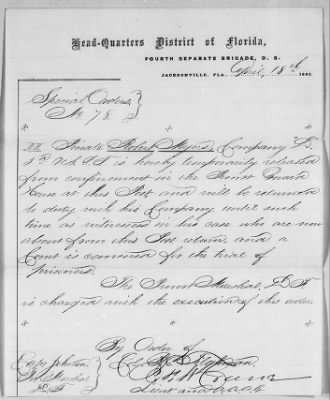 Head-Quarters District of Florida,
FOURTH SEPARATE BRIGADE, D. S.
JACKSONVILLE, FLA., April 18th 186
Special Orders
No 78
Private Robert Myers, Company
is hereby temporarily released
from confinement in the Provost Guard
House at this Post and will be returned
to duty with his Company until such
time as witnesses in his case who are now
absent from this Post return, and a
Court is convened for the trial of
prisoners.
The Provost Marshal, D. F.
is charged with the execution of this order.
By Order of
Capt Johnston
Pro Marshal
D. F.
Lieut and A.A.A.G